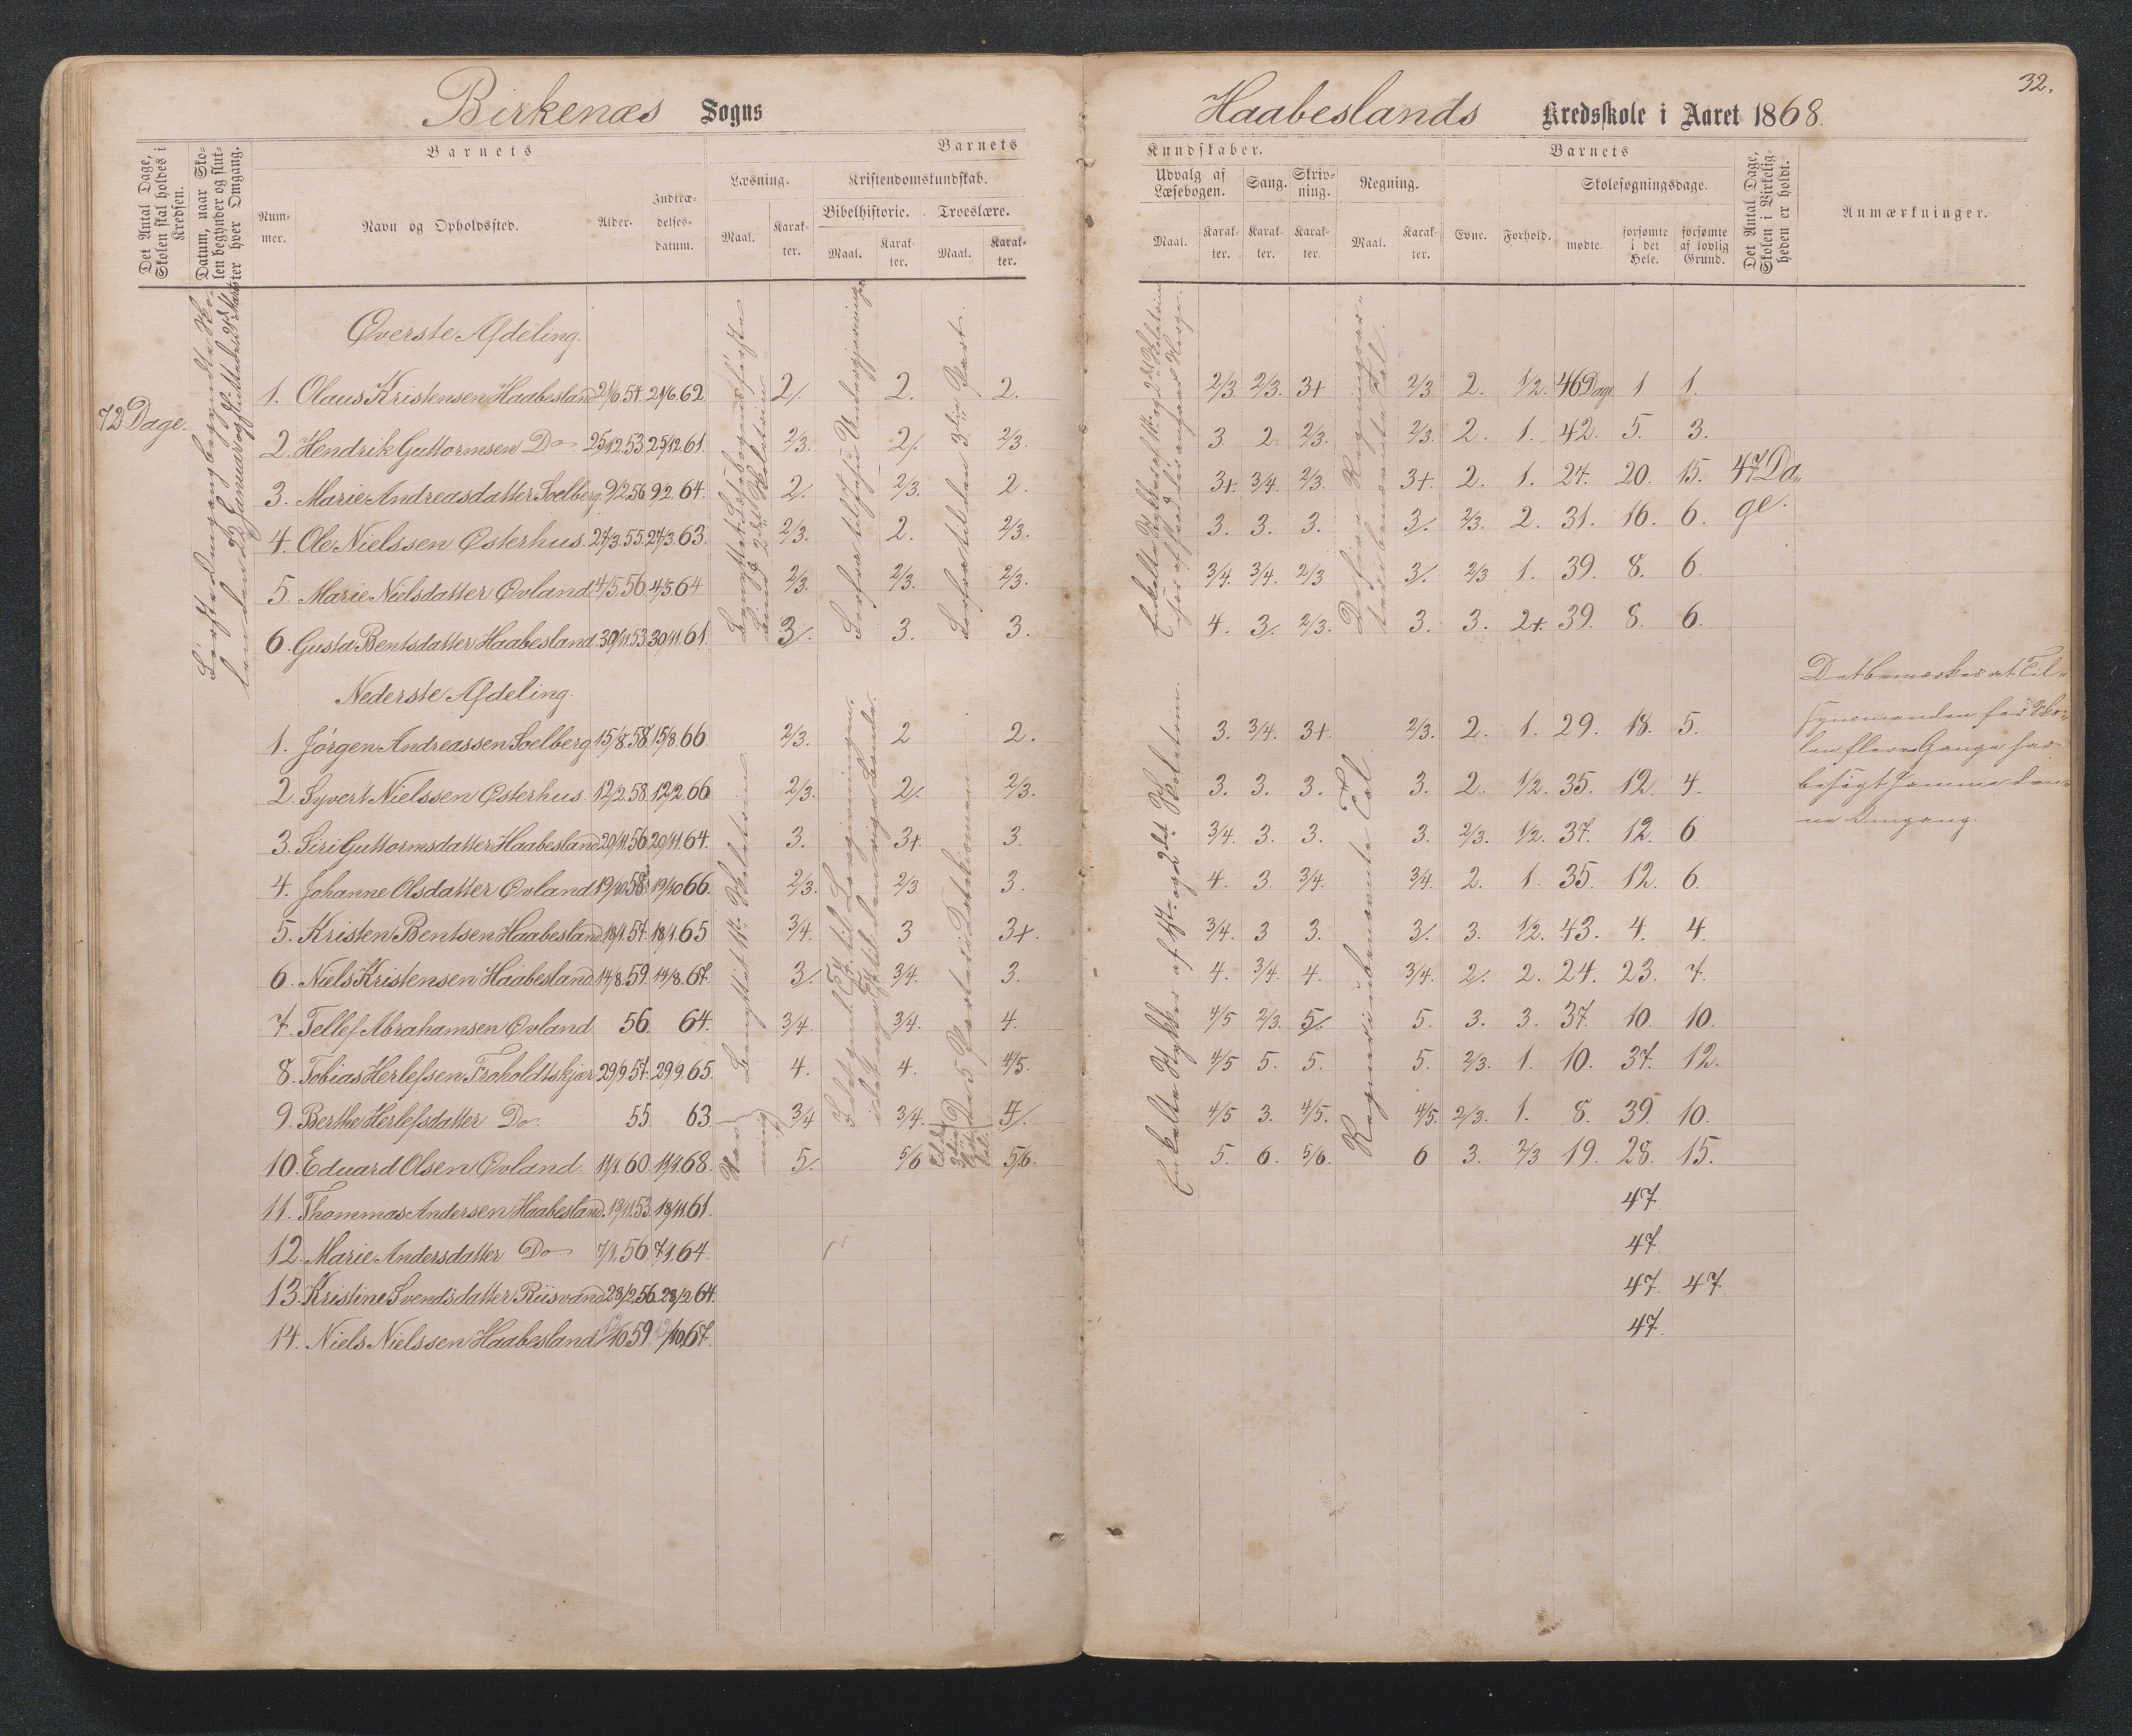 Birkenæs Sogns
Haabeslands Kredsskole i Aaret 1868.
32.
Det Antal Dage, Skolen skal holdes i Kredsen.
Datum, naar Skolen begynder og slutter hver Omgang.
Barnets
Nummer.
Navn og Opholdssted.
Alder.
Indtrædelsesdatum.
Barnets
Læsning.
Maal.
Karakter.
Kristendomskundskab.
Bibelhistorie.
Maal.
Karakter.
Troeslære.
Maal.
Karakter.
Kundskaber.
Udvalg af Læsebogen.
Maal.
Karakter.
Sang.
Karakter.
Skrivning.
Karakter.
Regning.
Maal.
Karakter.
Barnets
Evne.
Forhold.
Skolesøgningsdage.
mødte.
forsømte i det Hele.
forsømte af lovlig Grund.
Det Antal Dage, Skolen i Virkeligheden er holdt.
Anmærkninger.
72 Dage.
47 Dage.
Øverste Afdeling.
1. Olaus Kristensen Haabesland 21/6.54. 21/6.62 2/. 2. 2. 2/3. 2/3. 3+ 2/3 2. 1/2. 46 Dage 1 1.
2. Hendrik Guttormsen Do 25/12.53 25/12.61. 2/3. 2/. 2/3. 3. 2. 2/3. 2/3. 2. 1. 42. 5. 3.
3. Marie Andreasdatter Soelberg 9/2.56 9/2.64. 2/. 2/3. 2. 3+. 3/4. 2/3. 3+. 2. 1. 24. 20. 15.
4. Ole Nielssen Østerhus. 27/3.55. 27/3.63. 2/3. 2. 2/3. 3. 3. 3. 3/. 2/3. 2. 31. 16. 6.
5. Marie Nielsdatter Øvland 4/5.56 4/5.64 2/3. 2/3. 2/3. 3/4. 3/4. 2/3 3/. 2/3 1. 39. 8. 6.
6. Gusta Bentsdatter Haabesland. 30/11.53 30/11.61. 3/. 3. 3. 4. 3/. 2/3. 3. 3. 2+. 39. 8. 6.
Nederste Afdeling.
1. Jørgen Andreassen Soelberg 15/8.58. 15/8.66. 2/3. 2 2. 3. 3/4. 3+. 2/3. 2. 1. 29. 18. 5.
2. Syvert Nielssen Østerhus. 12/2.58. 12/2.66 2/3. 2/. 2/3. 3. 3. 3. 3. 2. 1/2. 35. 12. 4.
3. Siri Guttormsdatter Haabesland 20/11.56 20/11.64. 3. 3+. 3. 3/4. 3. 3. 3. 2/3. 1/2. 37. 12. 6
4. Johanne Olsdatter Øvland 19/10.58 19/10.66. 2/3. 2/3 3. 4. 3 3/4. 3/4. 2. 1. 35. 12. 6.
5. Kristen Bentsen Haabesland. 18/1.57. 18/1.65 3/4. 3 3+. 3/4. 3 3. 3/. 3. 1/2. 43. 4. 4.
6. Niels Kristensen Haabesland. 14/8.59. 14/8.67. 3/. 3/4. 3. 4. 3/4. 4. 3/4. 2/. 2. 24. 23. 7.
7. Tellef Abrahamsen Øvland. 56. 64. 3/4. 3/4. 4. 4/5 2/3. 5/. 5. 3. 3. 37. 10. 10.
8. Tobias Herlefsen Froholdtskjær 29/9.57. 29/9.65. 4. 4. 4/5. 4/5 5. 5. 5. 2/3. 1. 10. 37. 12.
9. Berthe Herlefsdatter Do. 55. 63. 3/4 3/4. 4/. 4/5 3. 4/5. 4/5. 2/3. 1. 8. 39. 10.
10. Eduard Olsen Øvland. 11/1.60. 11/1.68. 5/. 5/6 5/6. 5. 6. 5/6. 6 3. 2/3 19. 28. 15.
11. Thommas Andersen Haabesland. 18/11.53. 18/11.61. 47.
12. Marie Andersdatter Do 7/1.56. 7/1.64. 47.
13. Kristine Svendsdatter Riisvand 28/2.56. 28/2.64. 47. 47
14. Niels Nielssen Haabesland /10.59. /10.67. 47.
Det bemærkes at Tilsynsmanden for Skolen flere Gange har besøgt samme denne Omgang.